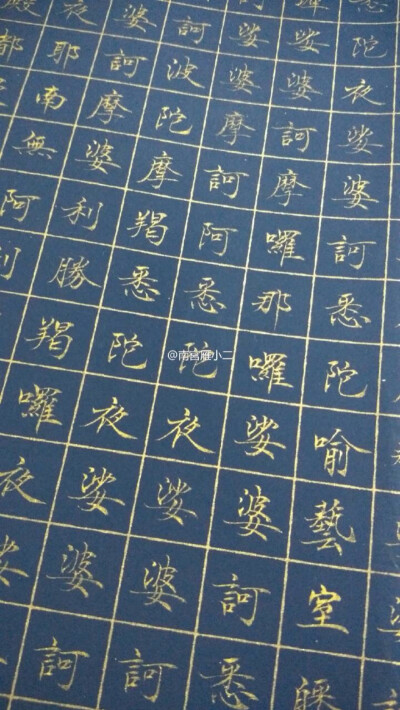 悉陀夜娑婆訶悉陀喻藝室
娑婆訶摩囉那囉娑婆訶悉
娑婆摩訶阿悉陀夜娑婆訶
訶波陀摩羯悉陀夜娑婆訶
婆訶摩婆利勝羯囉夜
夜耶南無阿利
@南宫雁小二